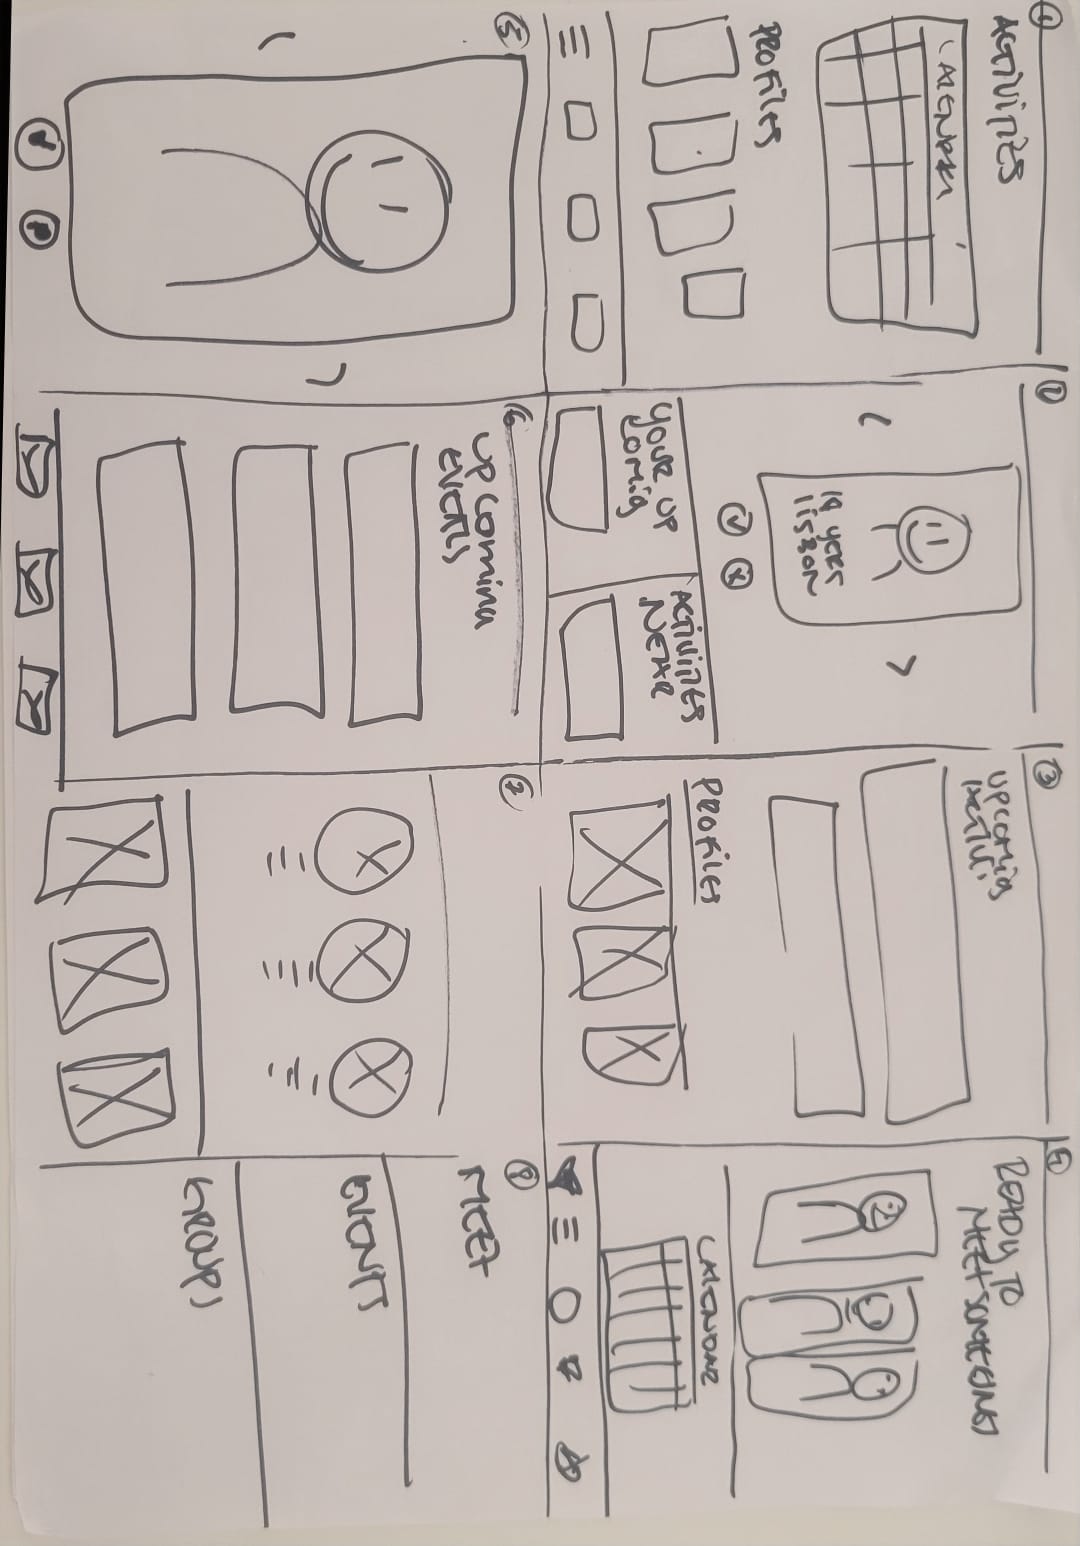 1
ACTIVITIES
CALENDAR
PROFILES
2
19 YERS
LISBON
YOUR UP
COMIG
ACTIVITIES
NEAR
3
UPCOMIG
ACTIV.
PROFILES
4
READY TO
MEET SOMEONE?
CALENDAR
5
6
UPCOMING
EVENTS
7
8
MEET
EVENTS
GROUPS